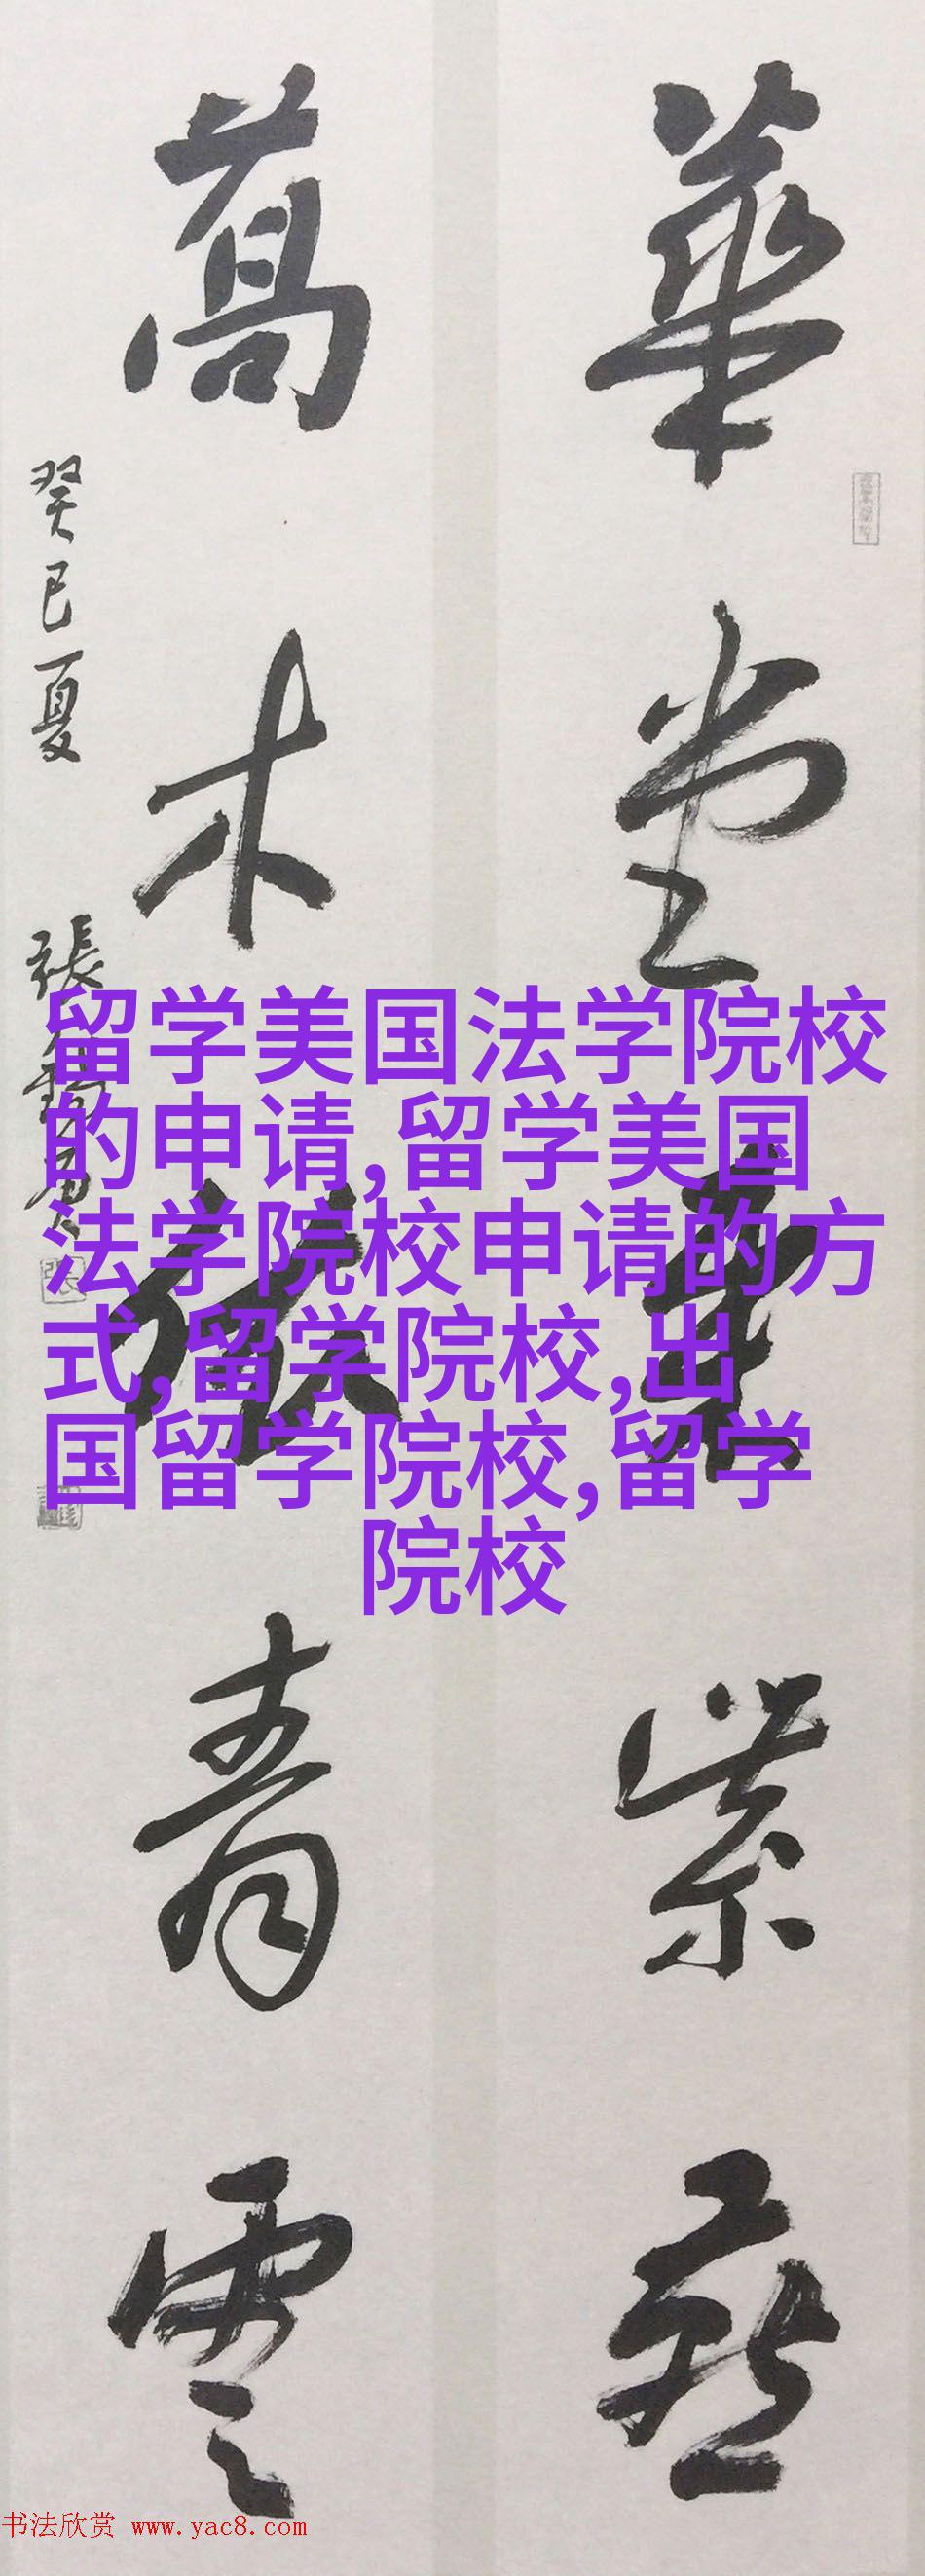 華堂紫
萬木青雲
癸巳夏 張
留学美国法学院校
的申请,留学美国
法学院校申请的方
式,留学院校,出
国留学院校,留学
院校
书法欣赏 www.yac8.com